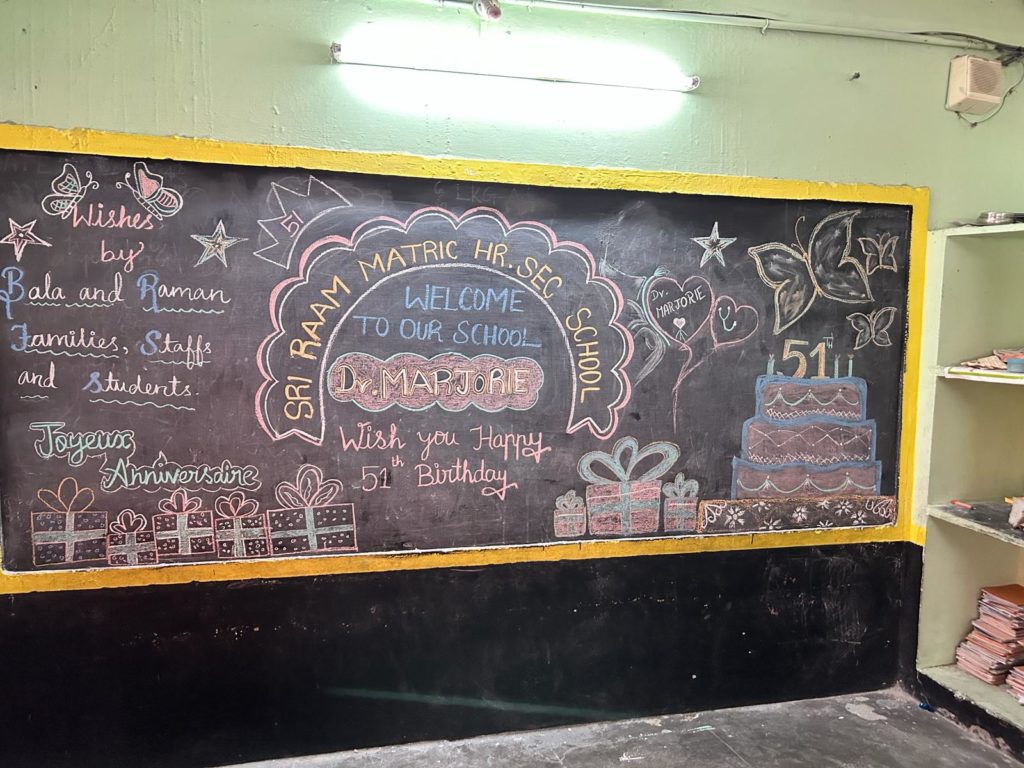 Wishes
by
Bala and Raman
Families, Staffs
and Students.
Joyeux
Anniversaire
51
SRI RAAM MATRIC HR. SEC SCHOOL
WELCOME
TO OUR SCHOOL
Dr. MARJORIE
Wish you Happy
51th Birthday
LKG
Dr.
MARJORIE
51st